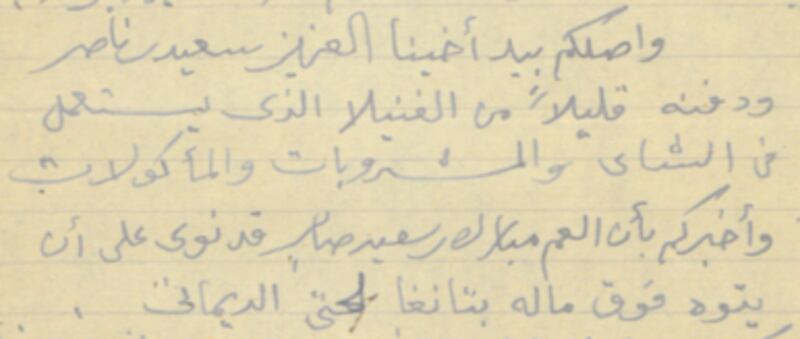 واصلكم بيد أخينا العزيز سعيد ناصر
ودفنه قليلاً من الفنيلا الذى يستعمل
فى الشاى والمشروبات والمأكولات
وأخبركم بأن العم مبارك سعيد صابر قد نوى على أن
يتوه فوق ماله بتانغا